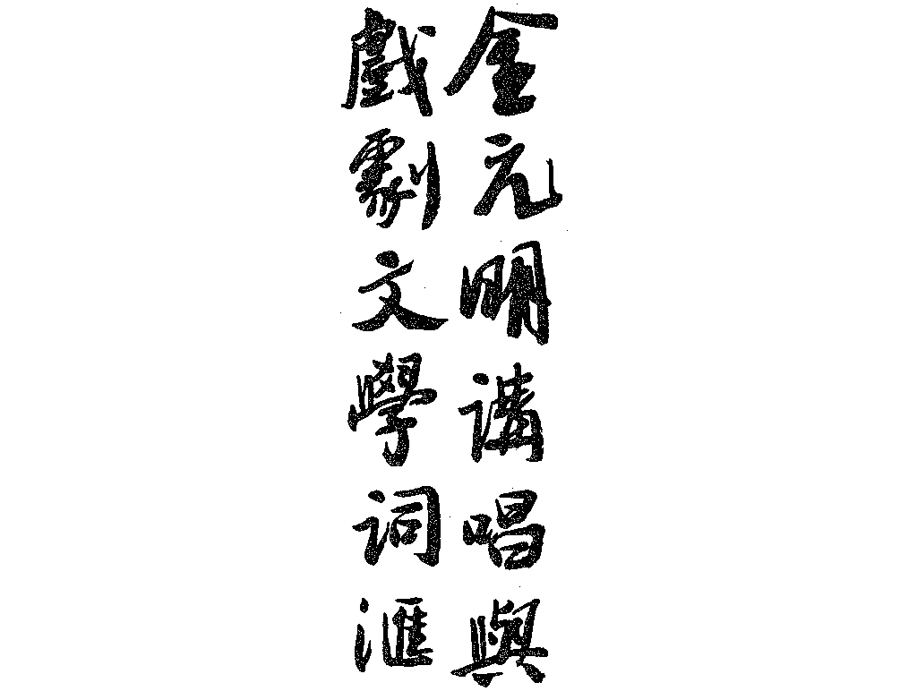 金元明講唱與
戲劇文學詞滙